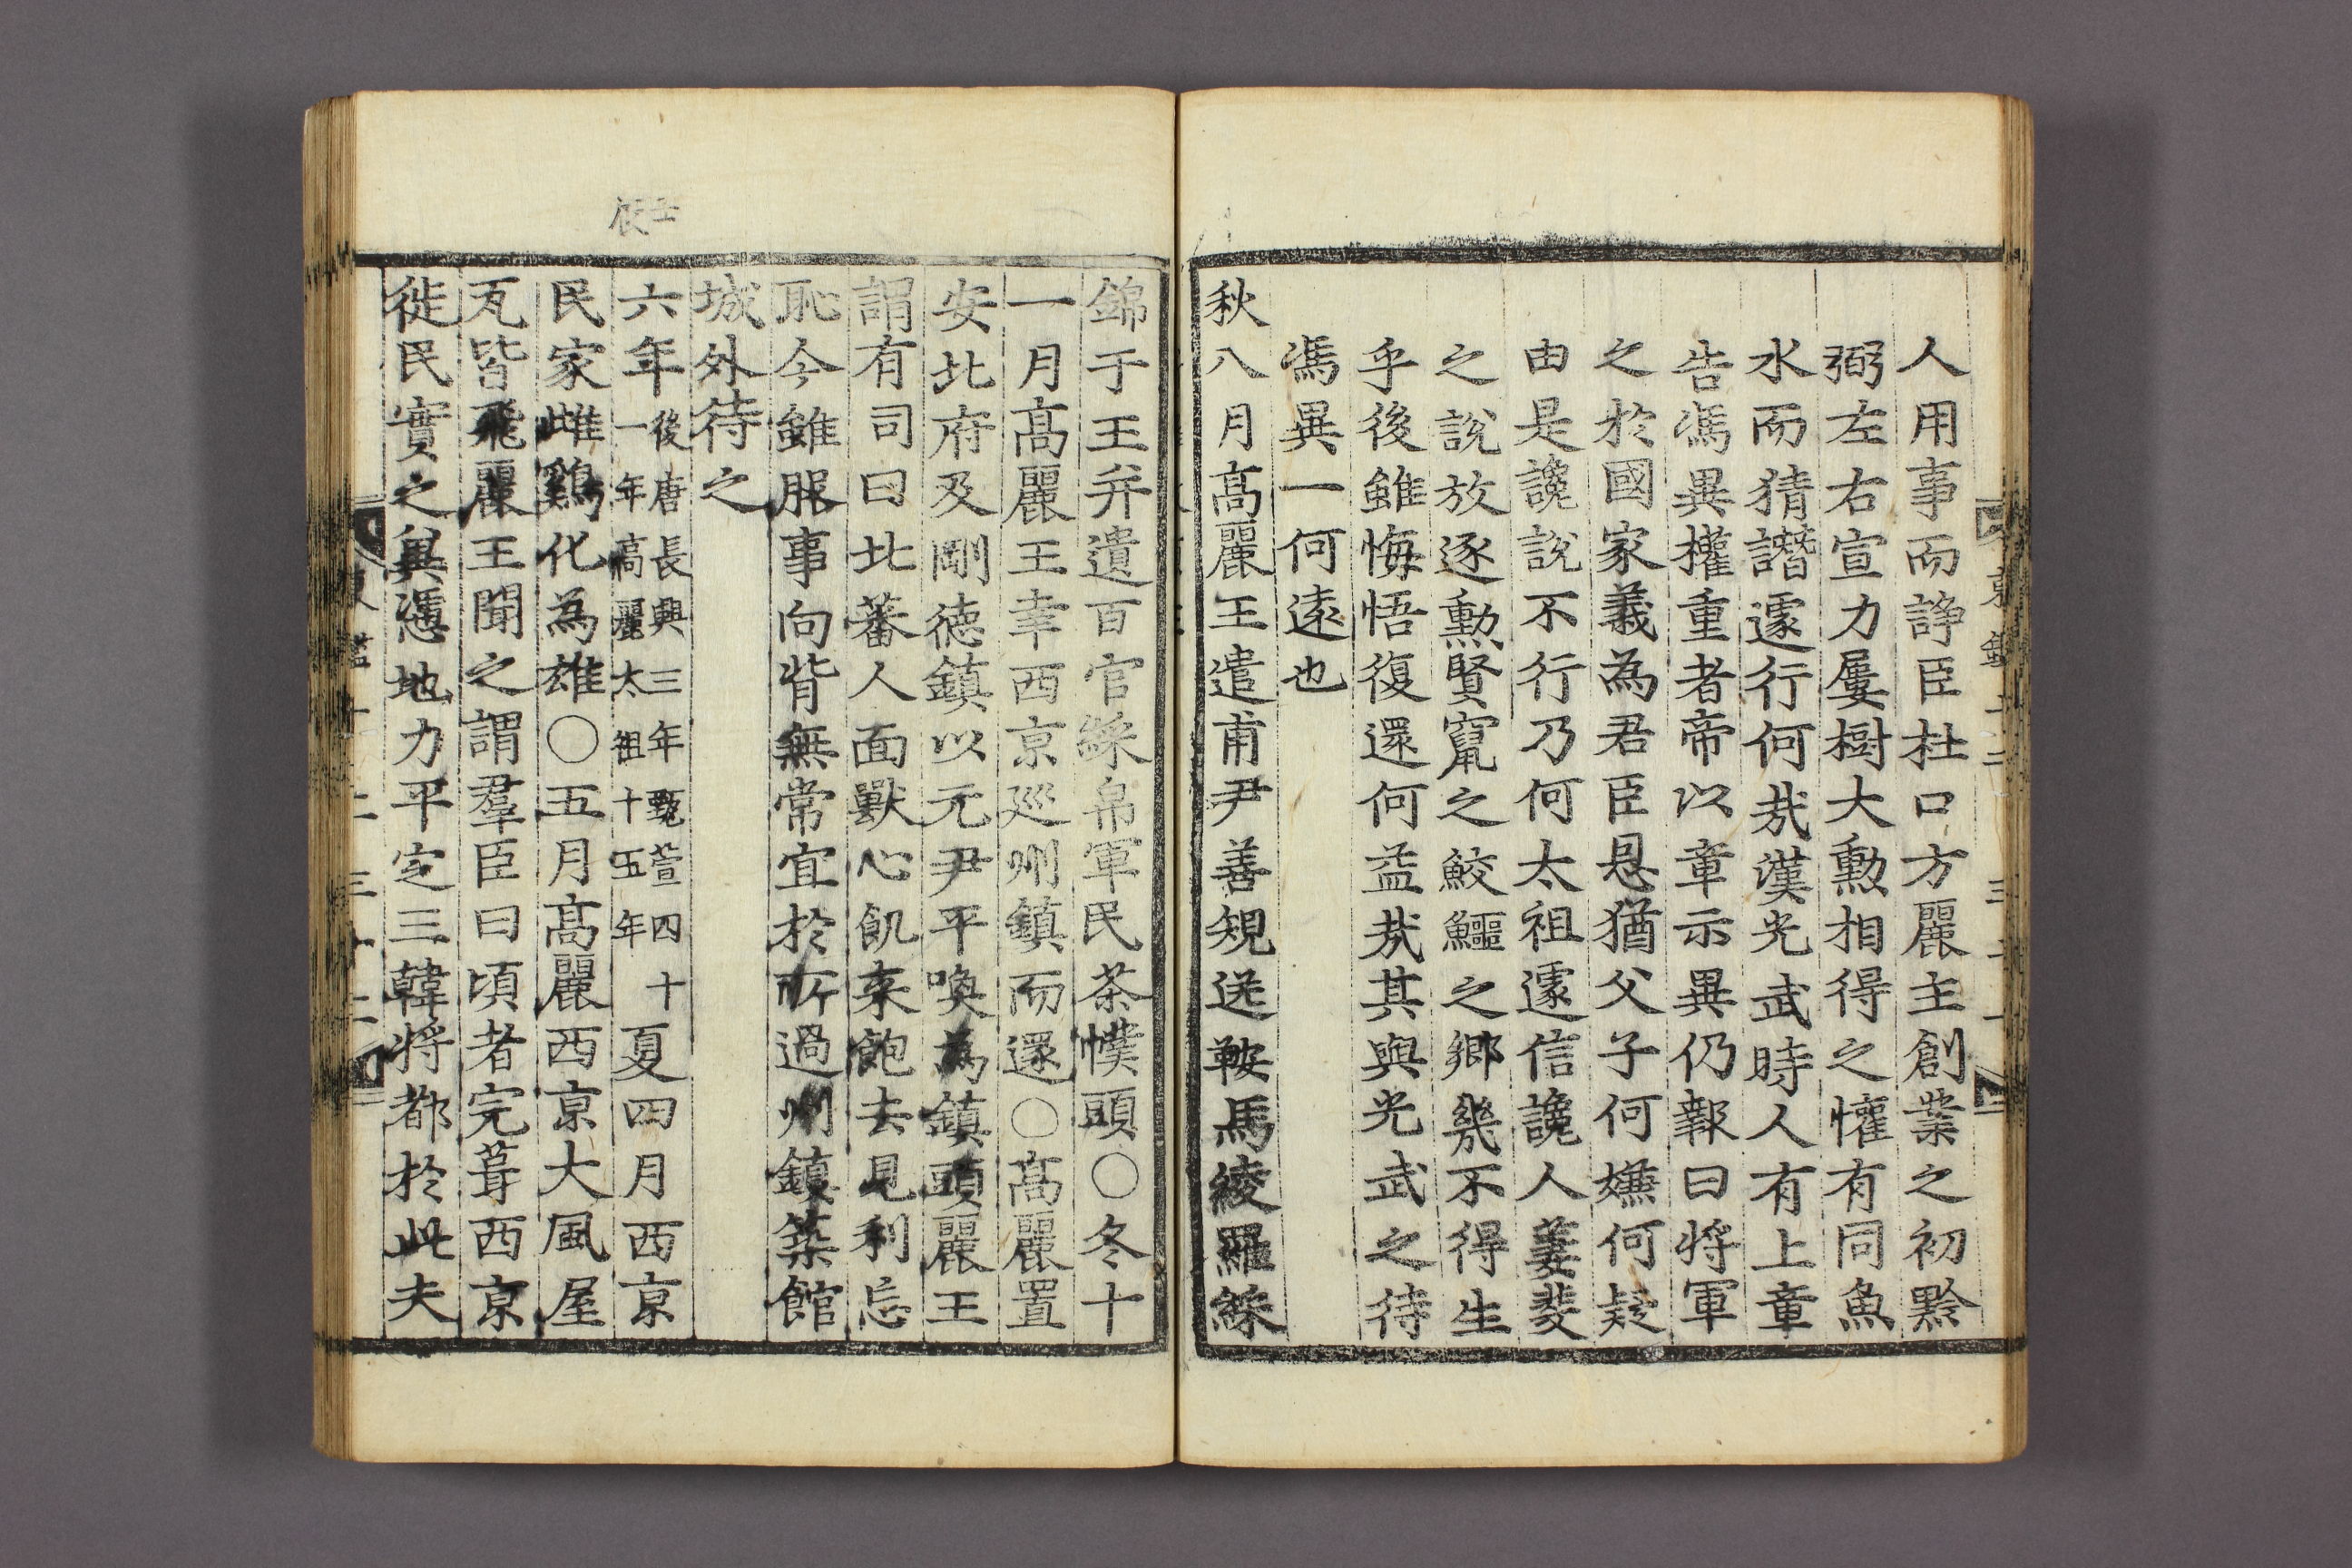 人用事而諍臣杜口方麗主創業之初黔
弼左右宣力屢樹大勳相得之懽有同魚
水而猜譖遽行何㢤漢光武時人有上章
告馮異權重者帝以章示異仍報曰將軍
之於國家義為君臣恩猶父子何嫌何疑
由是讒說不行乃何太祖遽信讒人萋斐
之說放逐勳賢竄之鮫鱷之鄉幾不得生
乎後雖悔悟復還何益㢤其與光武之待
馮異一何遠也
秋八月髙麗王遣甫尹善規送鞍馬綾羅綵
錦于王并遺百官綵帛軍民茶幞頭○冬十
一月髙麗王幸西京巡州鎮而還○髙麗置
安北府及剛德鎮以元尹平喚為鎮頭麗王
謂有司曰北蕃人面獸心飢来飽去見利忘
恥今雖服事向背無常宜於所過州鎮築館
城外待之
六年後唐長興三年甄萱四十一年高麗太祖十五年夏四月西京
民家雌鷄化為雄○五月髙麗西京大風屋
瓦皆飛麗王聞之謂羣臣曰頃者完葺西京
徙民實之兾憑地力平定三韓将都於此夫
壬辰
東鑑十二 三十一